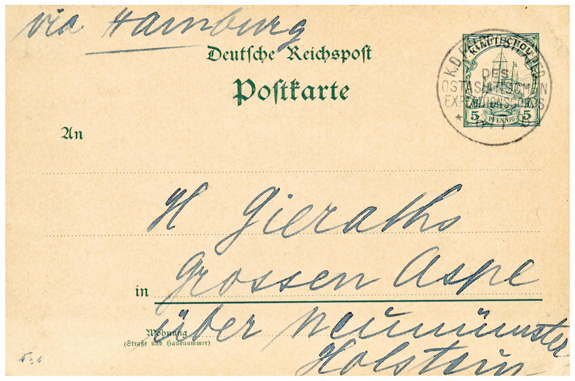 via Hamburg
Deutsche Reichspost
Postkarte
KIAUTSCHOU
DES
OSTASIATISCHEN
EXPEDITIONSCORPS
5 PFENNIG 5
An
H Gieraths
in Grossen Aspe
über Neumünster
Wohnung
(Straße und Hausnummer)
Holstein